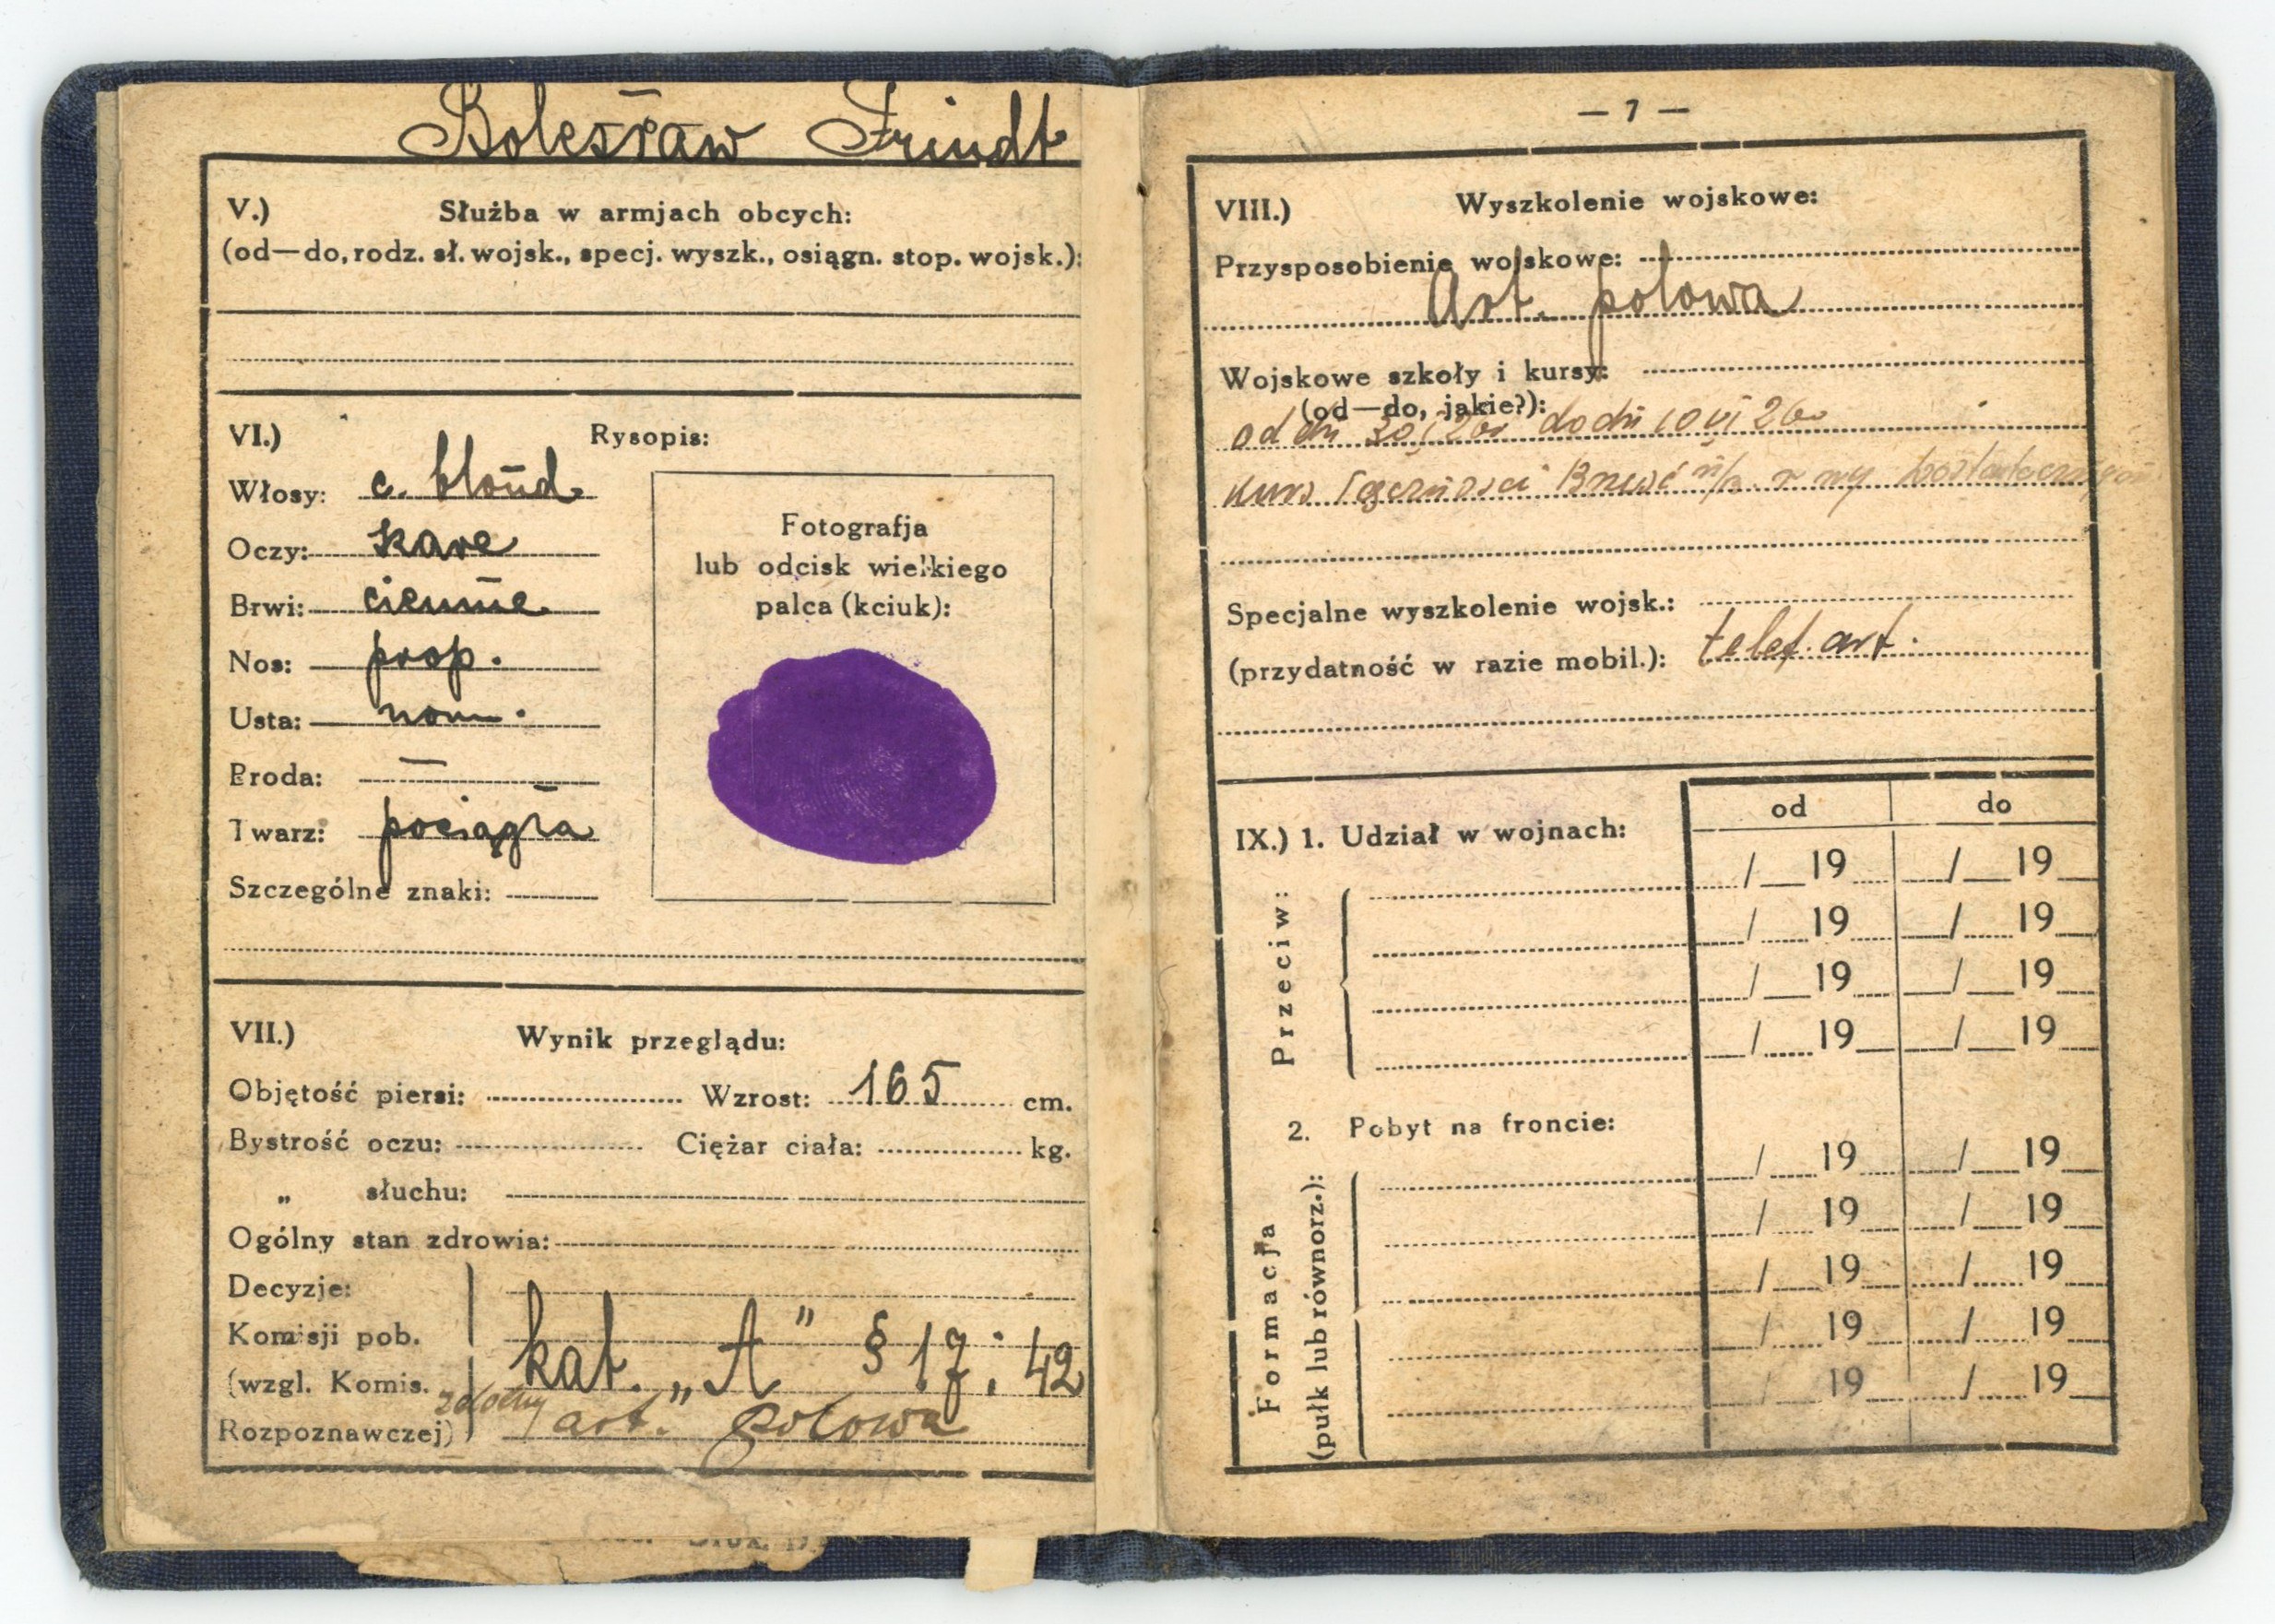 Bolesław Frindt
V.) Służba w armjach obcych:
(od—do, rodz. sł. wojsk., specj. wyszk., osiągn. stop. wojsk.):
VI.) Rysopis:
Włosy: c. blond
Oczy: kare
Brwi: ciemne
Nos: prop.
Usta: norm.
Broda: —
Twarz: pociągła
Szczególne znaki:
Fotografja
lub odcisk wielkiego
palca (kciuk):
VII.) Wynik przeglądu:
Objętość piersi: Wzrost: 165 cm.
Bystrość oczu: Ciężar ciała: kg.
„ słuchu:
Ogólny stan zdrowia:
Decyzje:
Komisji pob.
(wzgl. Komis.
Rozpoznawczej)
kat. „A" § 17: 42
zdolny art. polowa
— 7 —
VIII.) Wyszkolenie wojskowe:
Przysposobienie wojskowe:
Art. polowa
Wojskowe szkoły i kursy:
(od—do, jakie?):
od dn 30 I 26r do dn 10 VI 26r
kurs Łączności
Specjalne wyszkolenie wojsk.:
(przydatność w razie mobil.): telef. art.
IX.) 1. Udział w wojnach:
od do
Przeciw:
/ 19 / 19
/ 19 / 19
/ 19 / 19
/ 19 / 19
2. Pobyt na froncie:
Formacja
(pułk lub równorz.):
/ 19 / 19
/ 19 / 19
/ 19 / 19
/ 19 / 19
/ 19 / 19